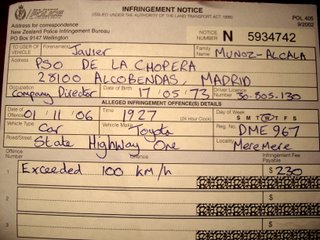 INFRINGEMENT NOTICE
(ISSUED UNDER THE AUTHORITY OF THE LAND TRANSPORT ACT 1998)
POL 405
9/2002
New Zealand Police Infringement Bureau
PO Box 9147 Wellington
NOTICE NUMBER N 5934742
TO USER OF VEHICLE Javier Family Name MUÑOZ-ALCALA
PSO DE LA CHOPERA
28100 ALCOBENDAS, MADRID
Occupation Company Director Date of Birth 17 05 73 Driver Licence Number 30.805.130
ALLEGED INFRINGEMENT OFFENCE(S) DETAILS
Date of Offence 01 11 06 Time 1927 (24 Hour Clock) Day of Week S M T W T F S
Vehicle Type Car Vehicle Make Toyota Reg. No. DME967
Road/Street State Highway One Locality Meremere
Offence Number Offence Infringement Fee Payable
1 Exceeded 100 km/h $ 230
2
3